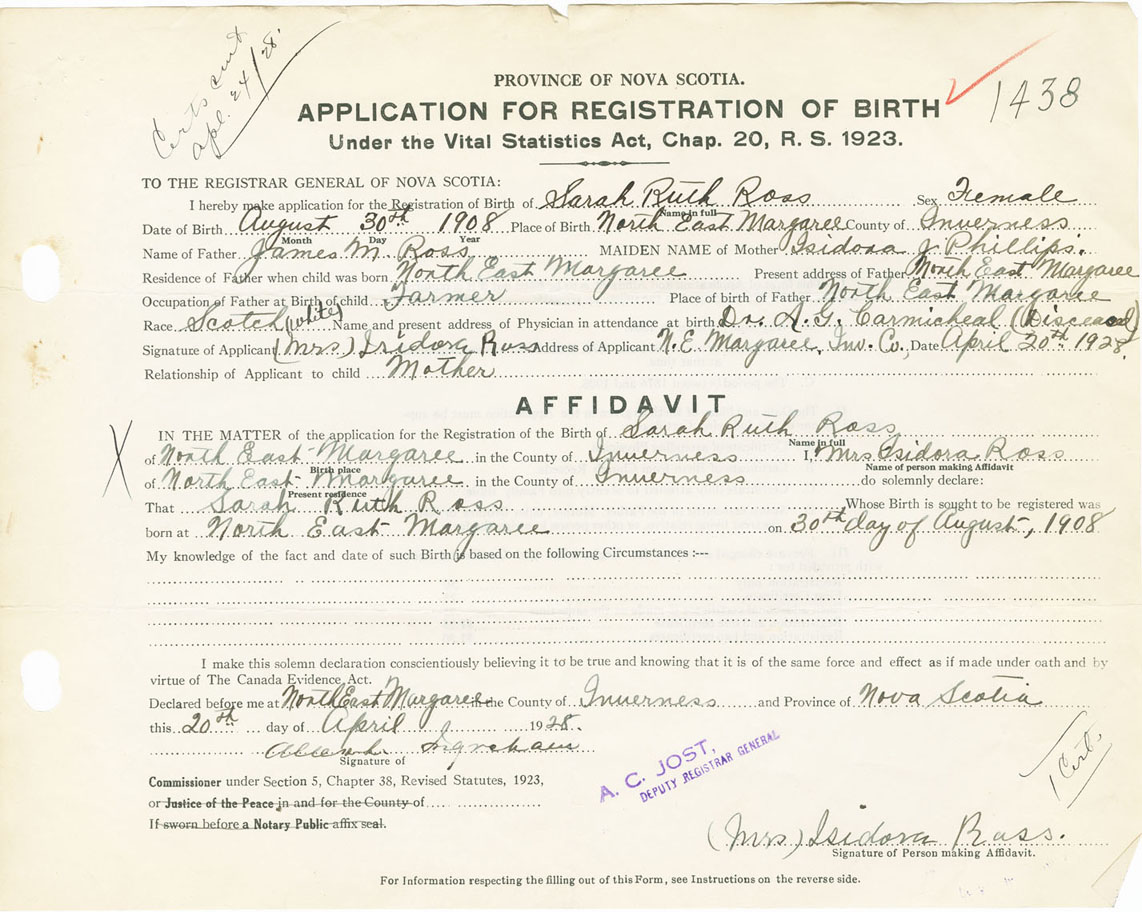 Certs sent
Apl. 24/28.
PROVINCE OF NOVA SCOTIA.
1438
APPLICATION FOR REGISTRATION OF BIRTH
Under the Vital Statistics Act, Chap. 20, R. S. 1923.
TO THE REGISTRAR GENERAL OF NOVA SCOTIA:
I hereby make application for the Registration of Birth of Sarah Ruth Ross Sex Female
Name in full
Date of Birth August 30th 1908 Place of Birth North East Margaree County of Inverness
Month Day Year
Name of Father James M. Ross MAIDEN NAME of Mother Isidora J Phillips.
Residence of Father when child was born North East Margaree Present address of Father North East Margaree
Occupation of Father at Birth of child Farmer Place of birth of Father North East Margaree
Race Scotch (white) Name and present address of Physician in attendance at birth Dr. A. G. Carmicheal (Disceased)
Signature of Applicant (Mrs.) Isidora Ross Address of Applicant N. E. Margaree, Inv. Co., Date April 20th 1928.
Relationship of Applicant to child Mother
AFFIDAVIT
X
IN THE MATTER of the application for the Registration of the Birth of Sarah Ruth Ross
Name in full
of North East Margaree in the County of Inverness I, Mrs Isidora Ross
Birth place Name of person making Affidavit
of North East Margaree in the County of Inverness do solemnly declare:
Present residence
That Sarah Ruth Ross Whose Birth is sought to be registered was
born at North East Margaree on 30th day of August, 1908
My knowledge of the fact and date of such Birth is based on the following Circumstances :---
I make this solemn declaration conscientiously believing it to be true and knowing that it is of the same force and effect as if made under oath and by
virtue of The Canada Evidence Act.
Declared before me at North East Margaree in the County of Inverness and Province of Nova Scotia
this 20th day of April 1928.
Ingraham
Signature of
Commissioner under Section 5, Chapter 38, Revised Statutes, 1923,
or Justice of the Peace in and for the County of
If sworn before a Notary Public affix seal.
A. C. JOST,
DEPUTY REGISTRAR GENERAL
1 Cert.
(Mrs) Isidora Ross.
Signature of Person making Affidavit.
For Information respecting the filling out of this Form, see Instructions on the reverse side.